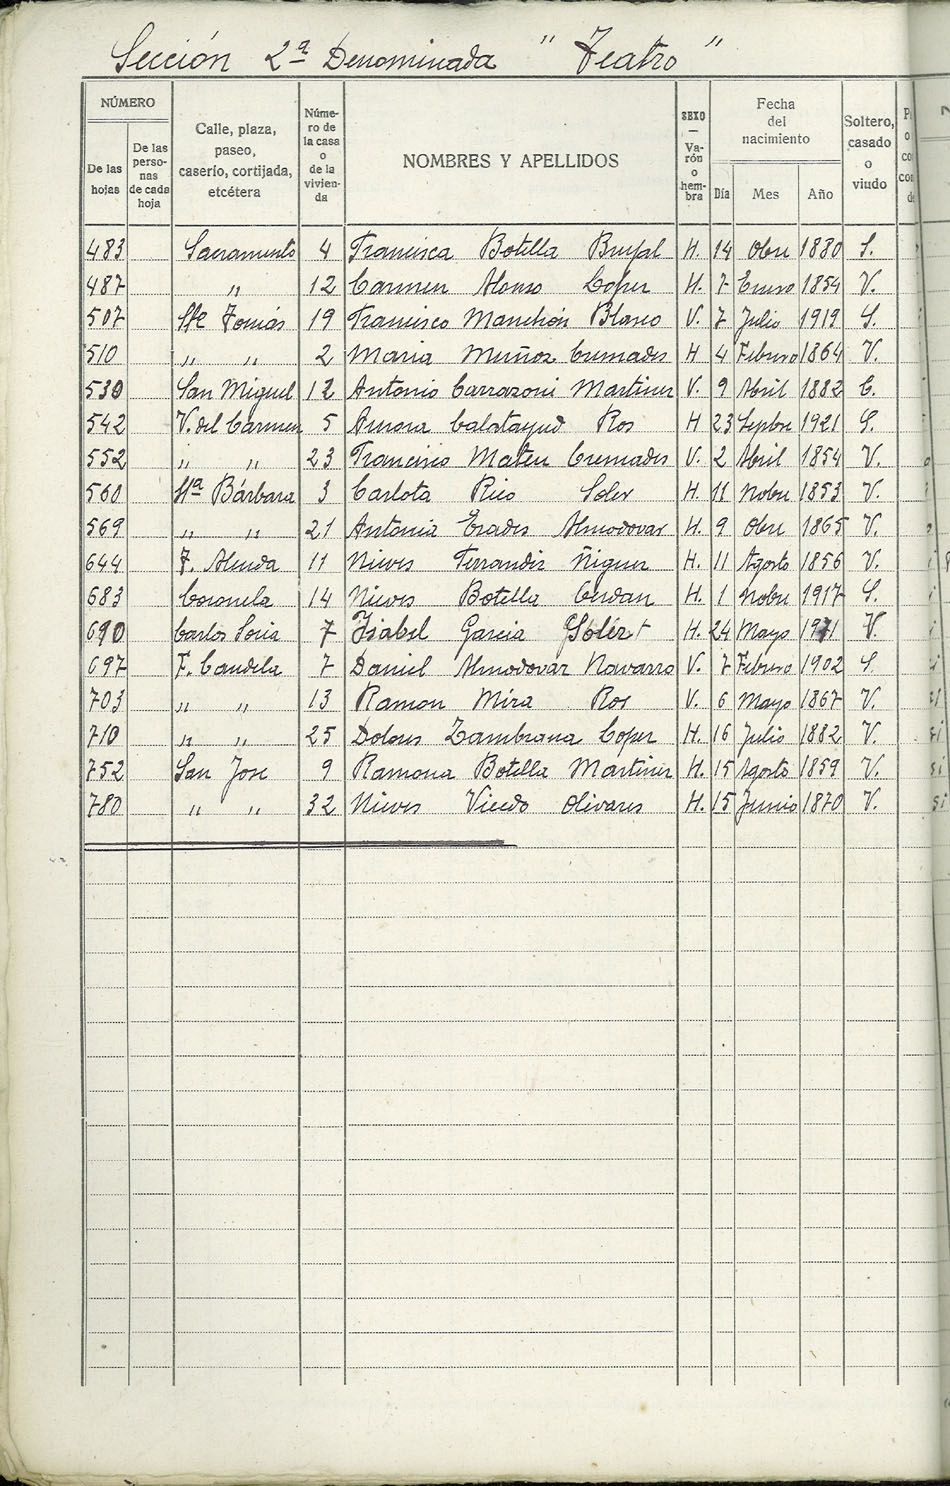 Sección 2ª Denominada "Teatro"
NÚMERO
De las hojas
De las perso- nas de cada hoja
Calle, plaza, paseo, caserío, cortijada, etcétera
Núme- ro de la casa o de la vivien- da
NOMBRES Y APELLIDOS
SEXO — Va- rón o hem- bra
Fecha del nacimiento
Día Mes Año
Soltero, casado o viudo
483 Sacramento 4 Francisca Botella Brufal H. 14 Obre 1880 S.
487 " 12 Carmen Alonso Lopez H. 7 Enero 1854 V.
507 Sto Tomás 19 Francisco Manchón Blasco V. 7 Julio 1919 S.
510 " " 2 Maria Muñoz Cremades H 4 Febrero 1864 V.
530 San Miguel 12 Antonio Carrazoni Martinez V. 9 Abril 1882 C.
542 V. del Carmen 5 Aurora Calatayud Ros H 23 Sepbre 1921 S.
552 " " 23 Francisco Mateu Cremades V. 2 Abril 1854 V.
560 Sta Bárbara 3 Carlota Rico Soler H. 11 Nobre 1853 V.
569 " " 21 Antonia Erades Almodovar H. 9 Obre 1865 V.
644 F. Alenda 11 Nieves Ferrandiz Ñiguez H. 11 Agosto 1856 V.
683 Coronela 14 Nieves Botella Cerdan H. 1 Nobre 1917 S.
690 Carlos Soria 7 Isabel Garcia Soler H. 24 Mayo V.
697 F. Candela 7 Daniel Almodovar Navarro V. 7 Febrero 1902 S.
703 " " 13 Ramon Mira Ros V. 6 Mayo 1867 V.
710 " " 25 Dolores Zambrana Lopez H. 16 Julio 1882 V.
752 San Jose 9 Ramona Botella Martinez H. 15 Agosto 1859 V. si
780 " " 32 Nieves Vicedo Olivares H. 15 Junio 1870 V. si